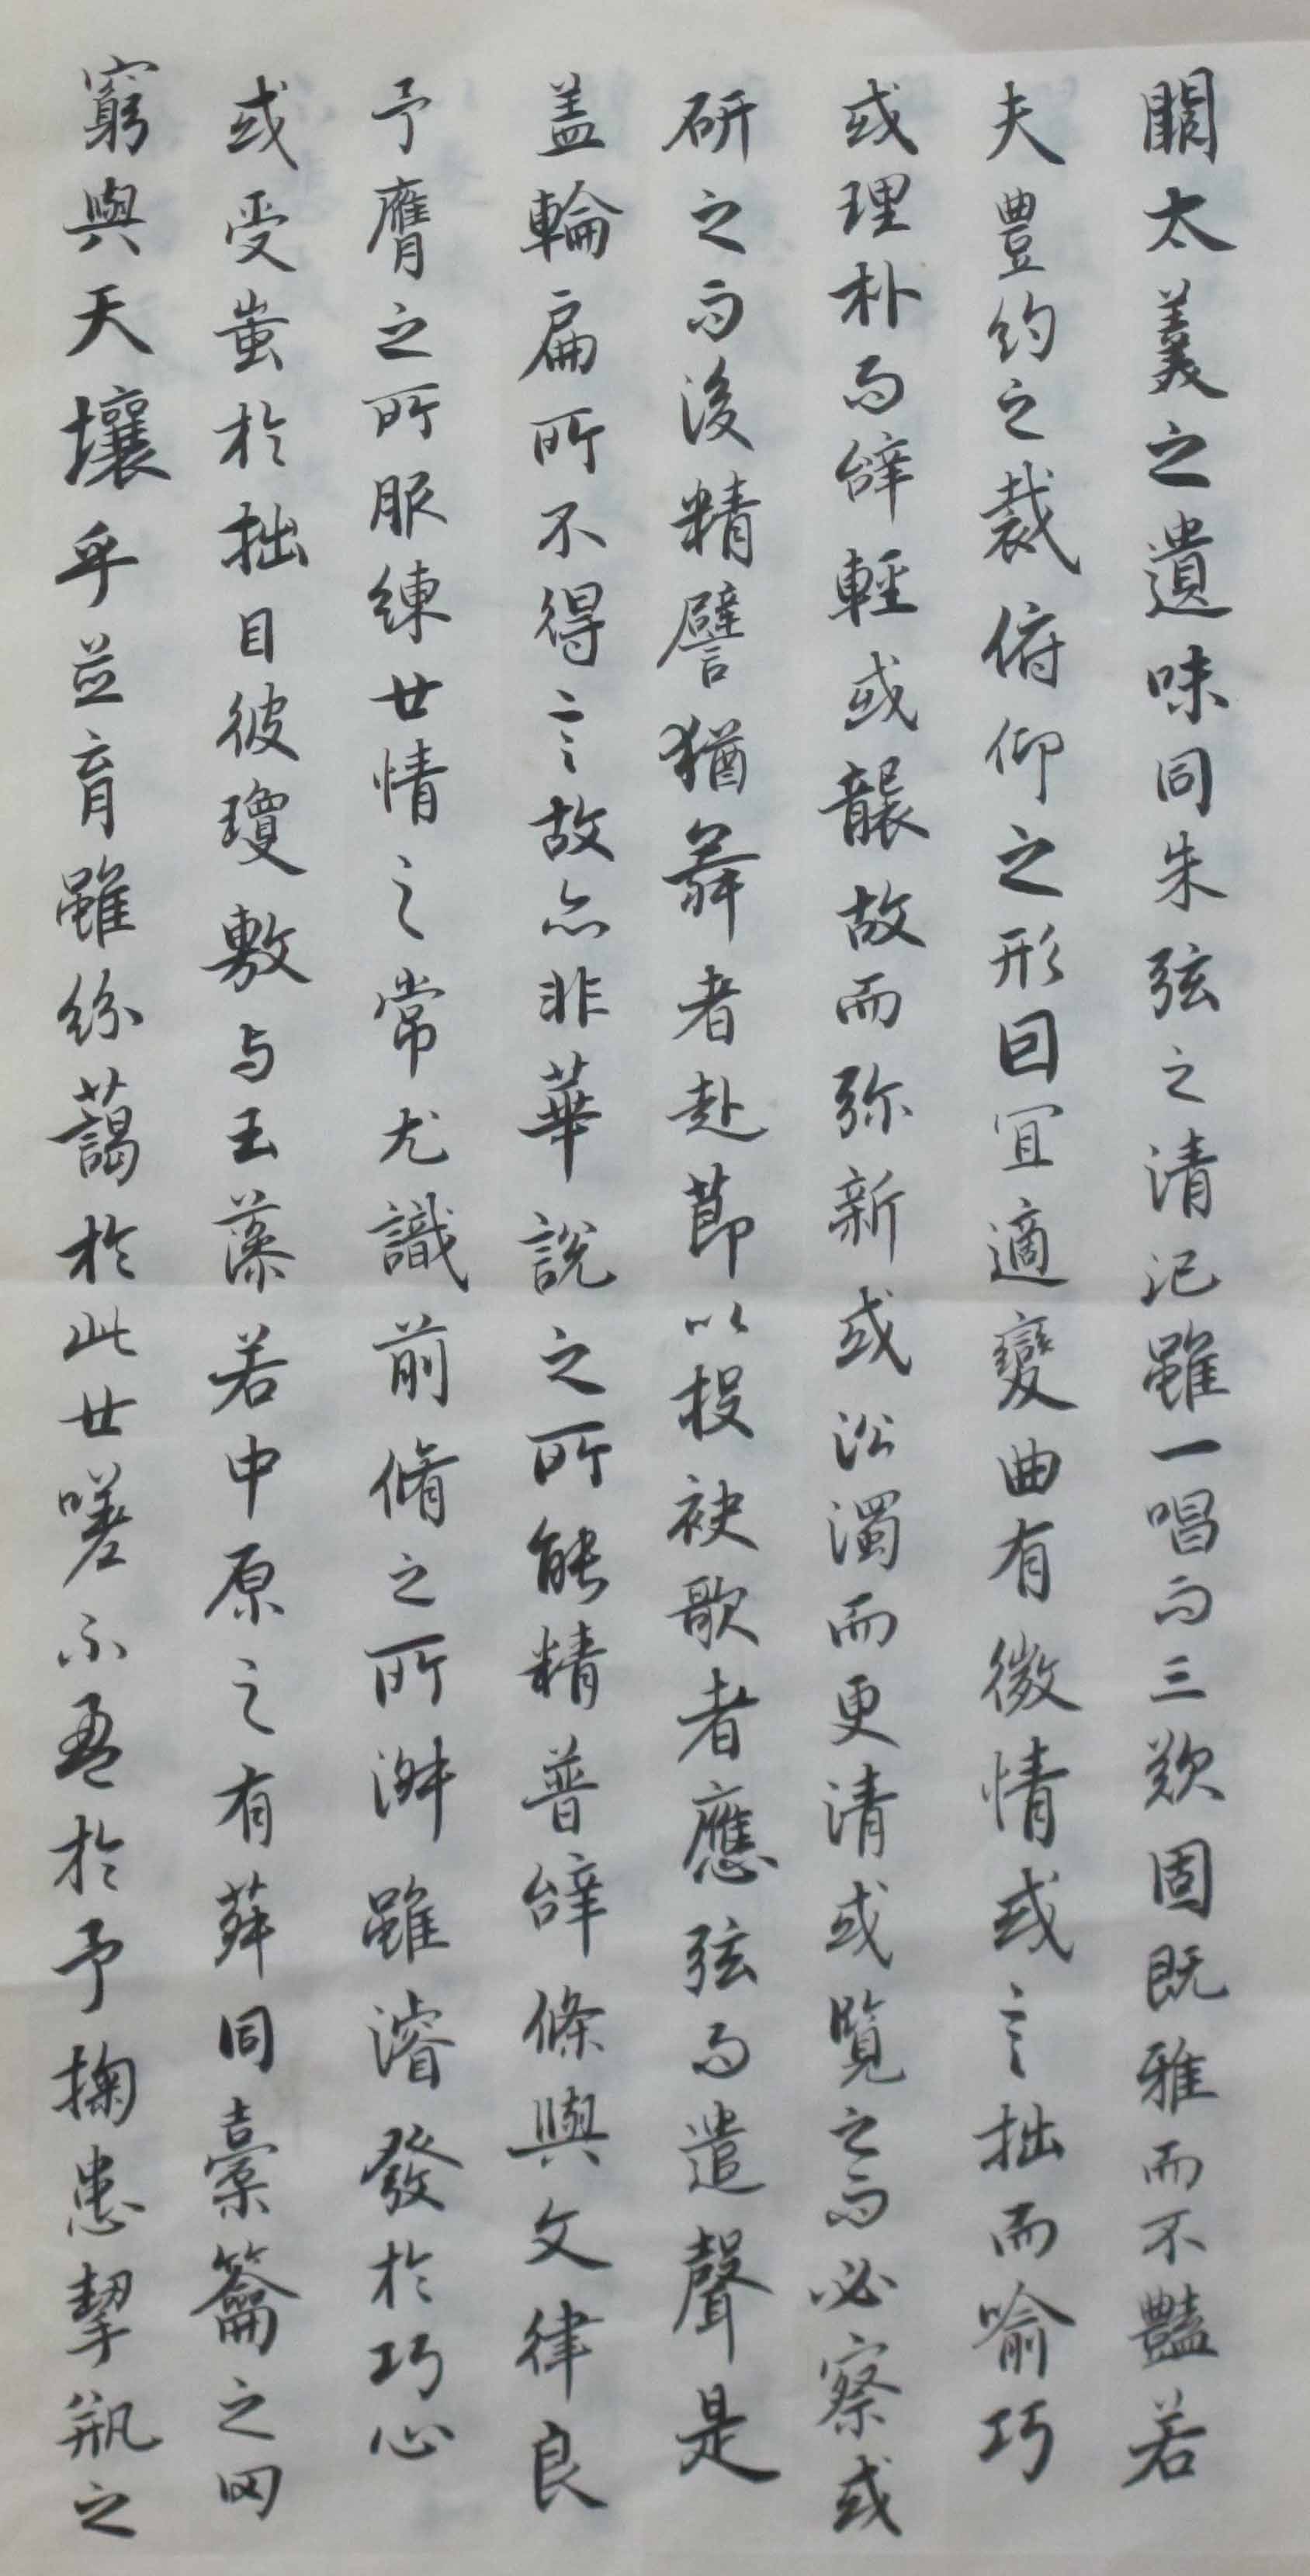 闕太羹之遺味同朱弦之清汜雖一唱而三歎固既雅而不豔若
夫豊約之裁俯仰之形因宜適變曲有微情或言拙而喻巧
或理朴而辝輕或襲故而弥新或沿濁而更清或覧之而必察或
研之而後精譬猶舞者赴莭以投袂歌者應弦而遣聲是
盖輪扁所不得言故亦非華說之所能精普辝條與文律良
予膺之所服練世情之常尤識前脩之所淑雖濬發於巧心
或受蚩於拙目彼瓊敷与玉藻若中原之有菽同橐籥之罔
窮與天壤乎並育雖紛藹於此世嗟不盈於予掬患挈瓶之